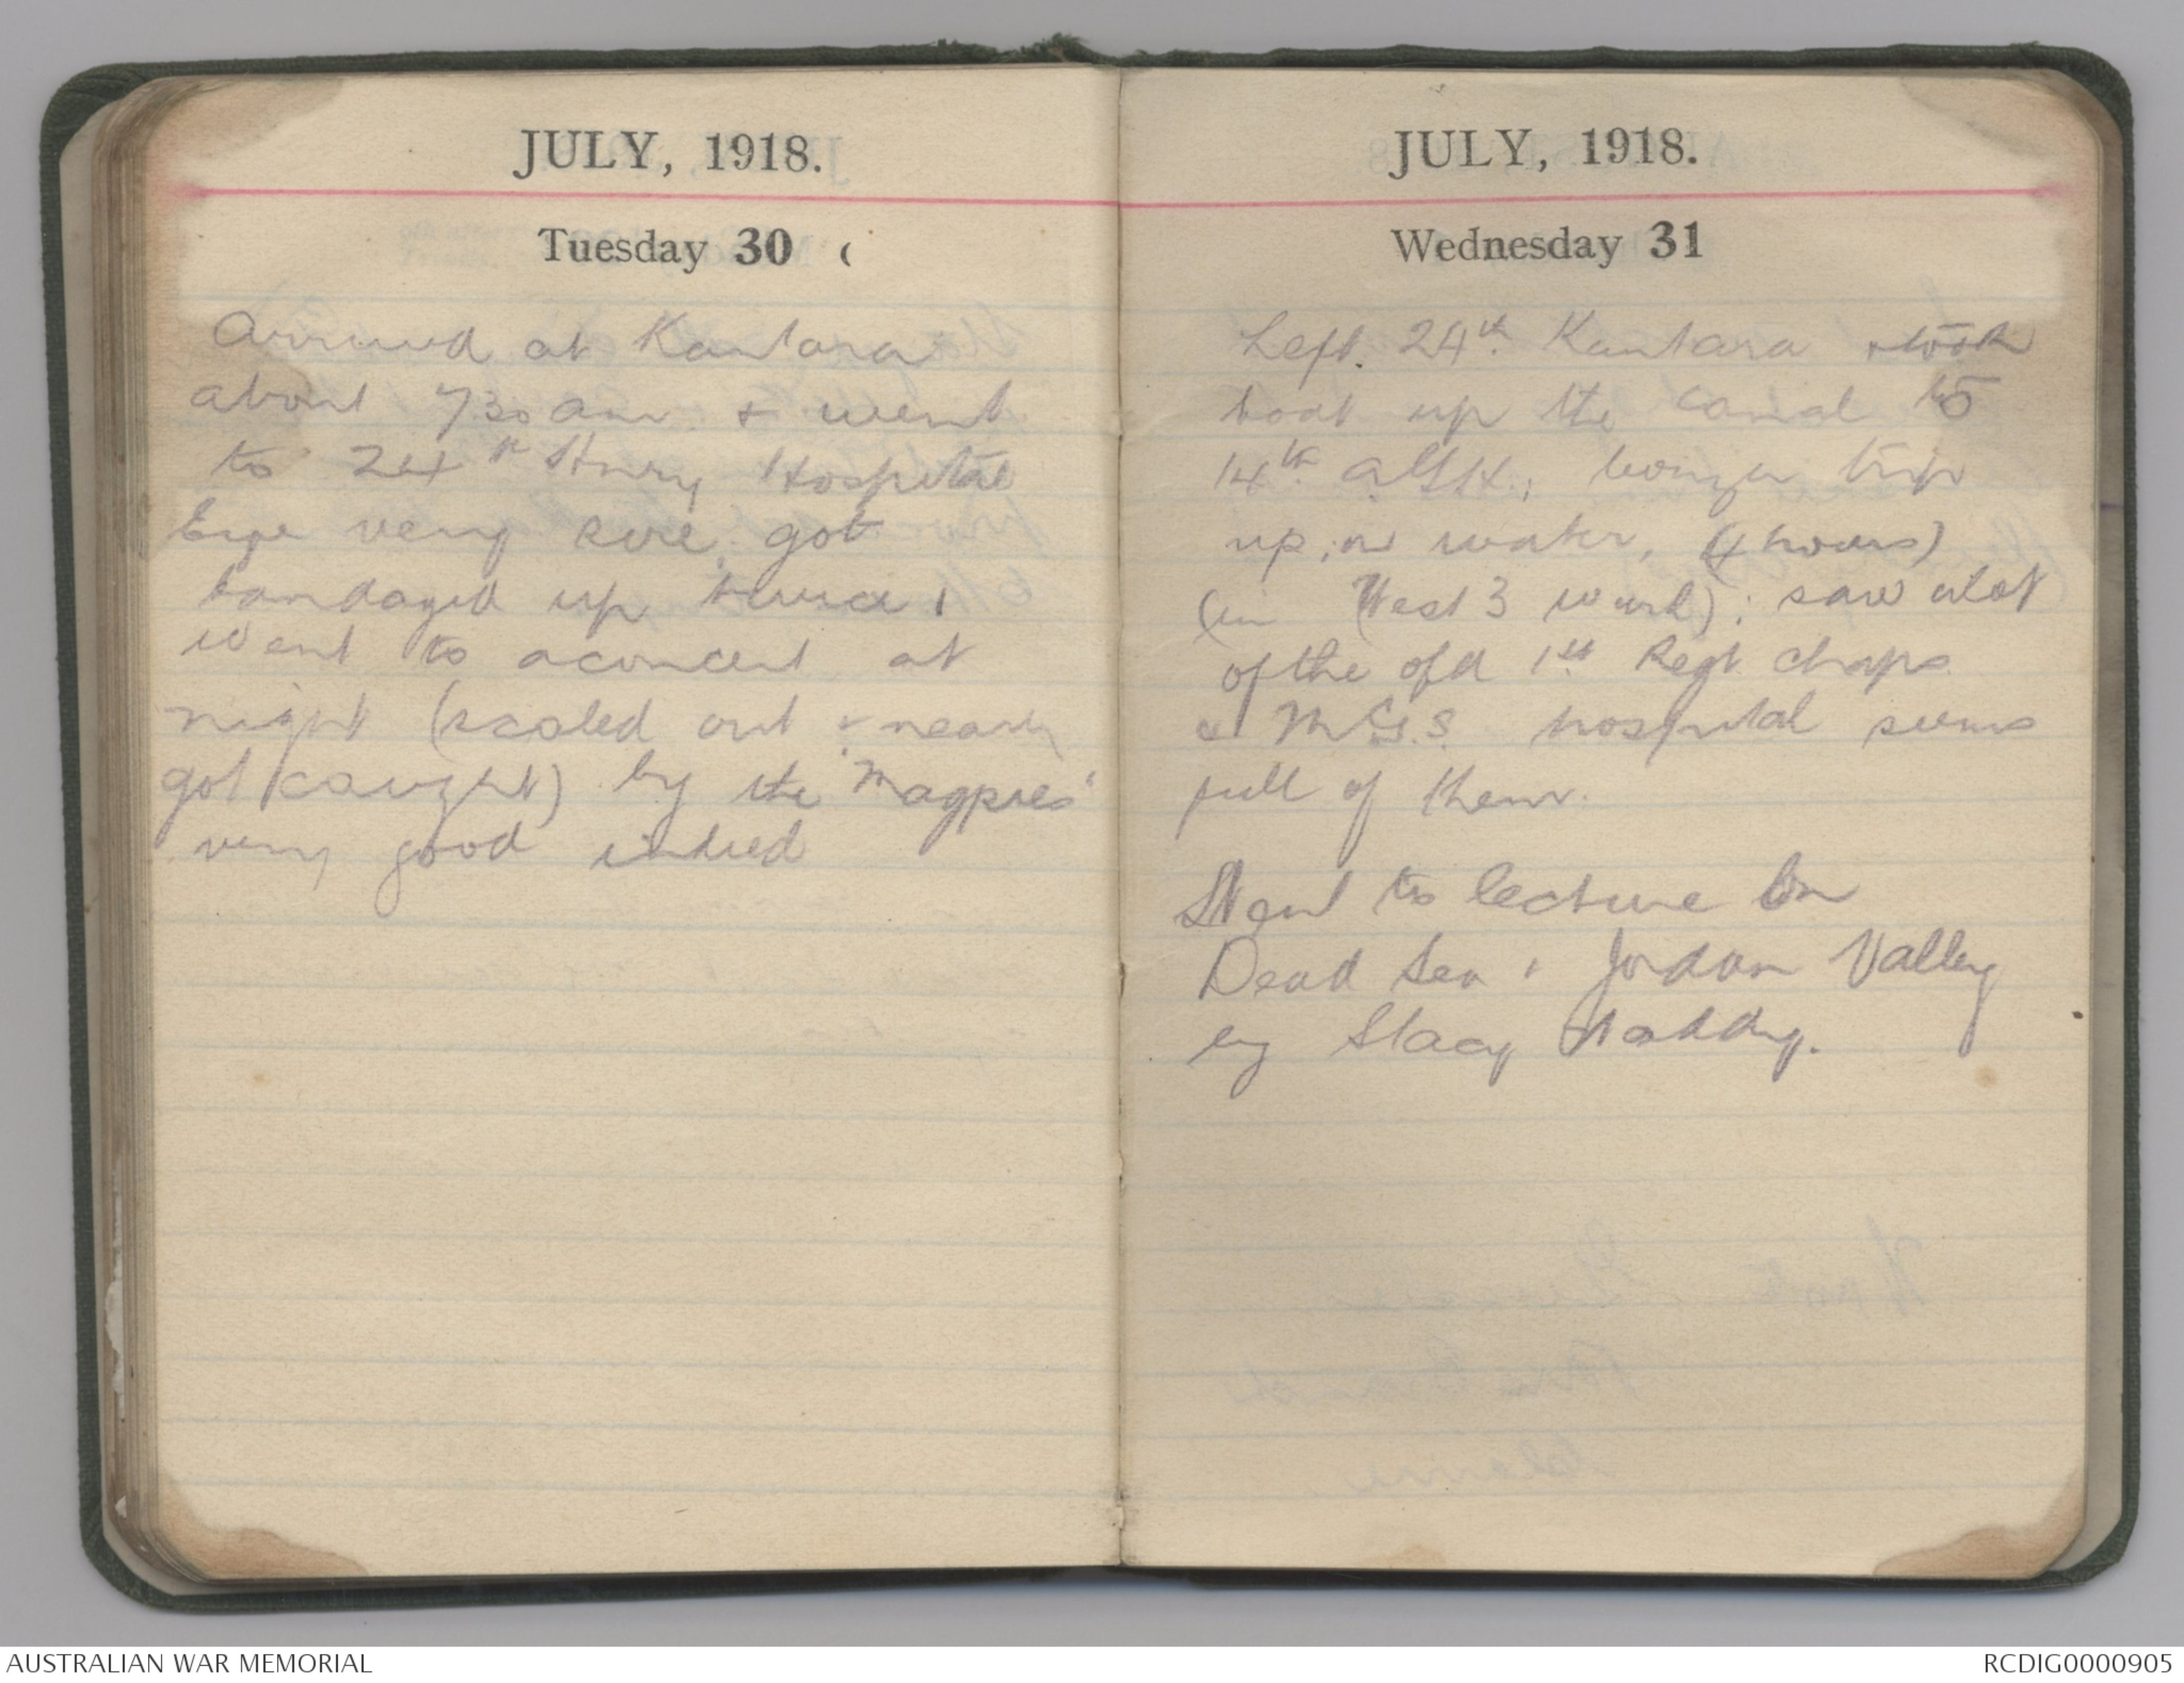 JULY, 1918.
Tuesday 30
Arrived at Kantara
about 730 am & went
to 24th Stnry Hospital
Eye very sore, got
bandaged up twice.
went to a concert at
night (scaled out & nearly
got caught) by the "Magpies"
very good indeed
JULY, 1918.
Wednesday 31
Left. 24th Kantara & took
boat up the canal to
14th A.G.H., bonza trip
up, on water, (4 hours)
(in West 3 ward); saw alot
of the old 1st Regt chaps
& M.G.S. hospital seems
full of them.
Went to lecture on
Dead Sea & Jordan Valley
by Stacy Waddy.
AUSTRALIAN WAR MEMORIAL
RCDIG0000905